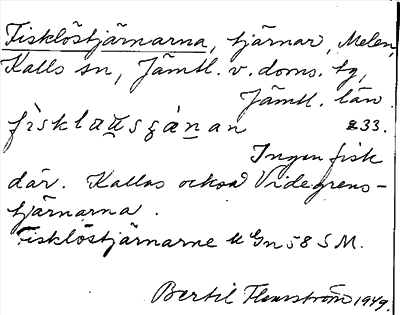 Fisklöstjärnarna, tjärnar, Melen,
Kalls sn, Jämtl. v. doms. tg,
Jämtl. län.
233.
Ingen fisk
där. Kallas också Videgrens-
tjärnarna.
Fisklöstjärnarne u Gn 58 S M.
Bertil Flemström 1949.